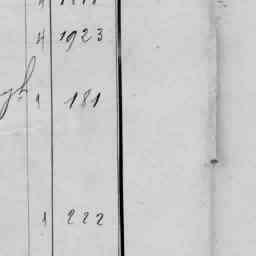 4 1923
1 181
1 222